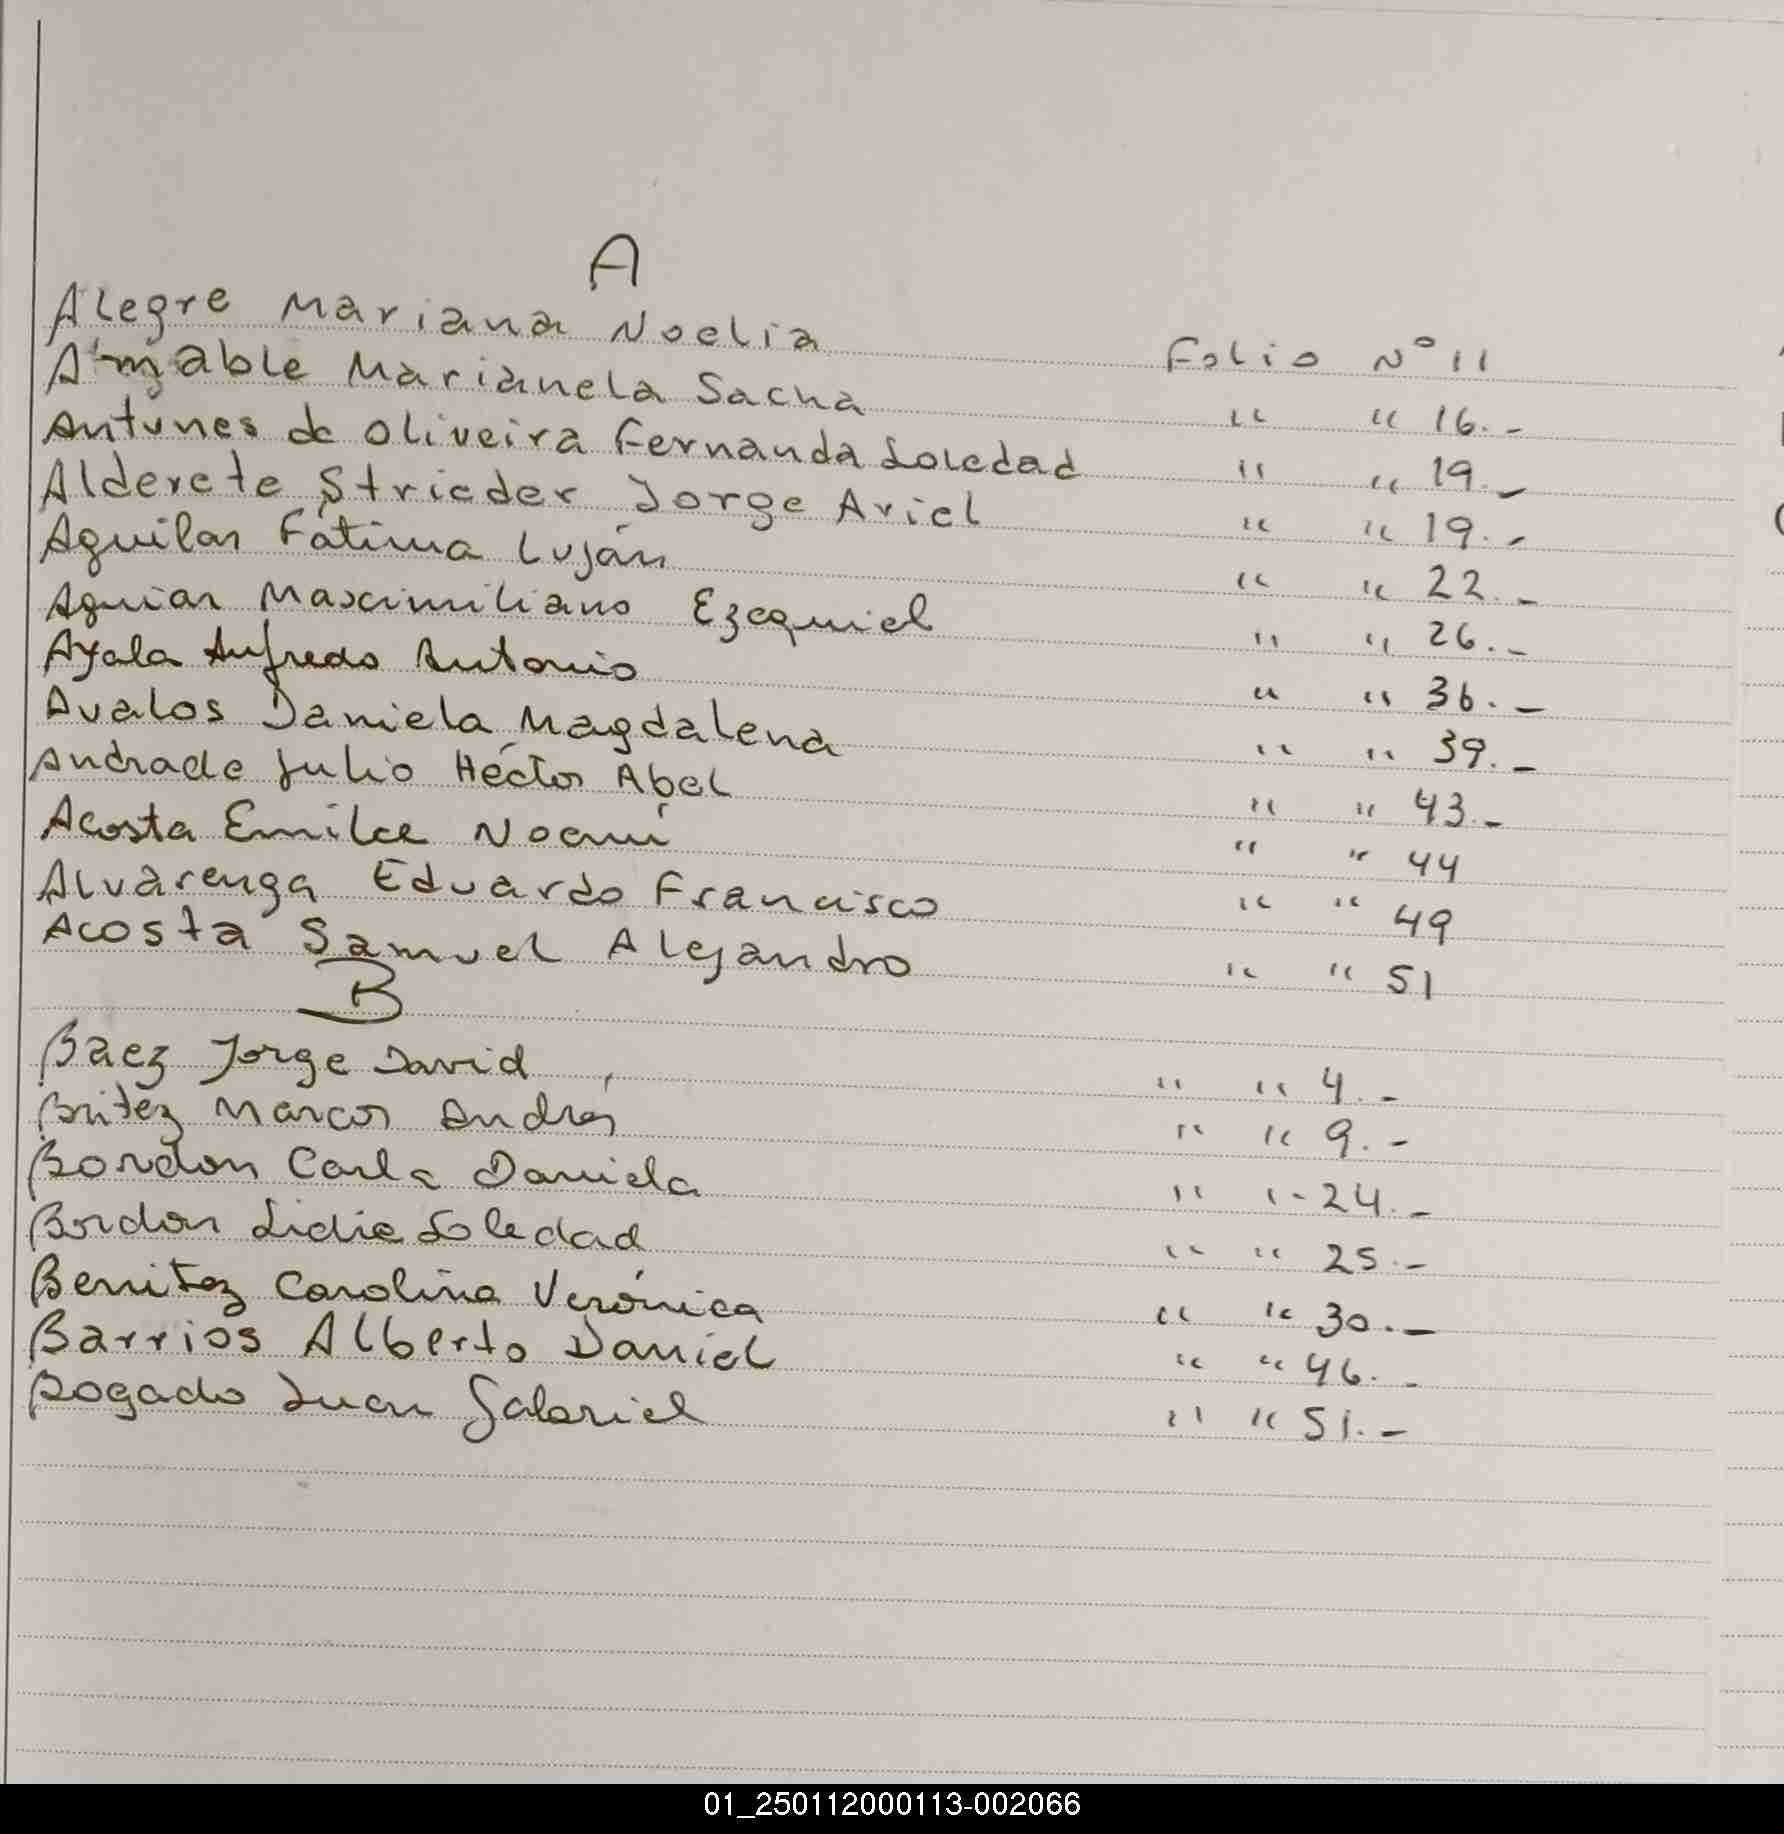 A
Alegre Mariana Noelia Folio Nº 11
Amable Marianela Sacha " " 16.-
Antunes de Oliveira Fernanda Soledad " " 19.-
Alderete Strieder Jorge Ariel " " 19.-
Aguilar Fátima Luján " " 22.-
Aguiar Maximiliano Ezequiel " " 26.-
Ayala Anfredo Antonio " " 36.-
Avalos Daniela Magdalena " " 39.-
Andrade Julio Héctor Abel " " 43.-
Acosta Emilce Noemí " " 44
Alvarenga Eduardo Francisco " " 49
Acosta Samuel Alejandro " " 51
B
Baez Jorge David " " 4.-
Britez Marcos Andrés " " 9.-
Bordon Carla Daniela " " 24.-
Bordon Lidia Soledad " " 25.-
Benitez Carolina Verónica " " 30.-
Barrios Alberto Daniel " " 46.-
Bogado Juan Gabriel " " 51.-
01_250112000113-002066